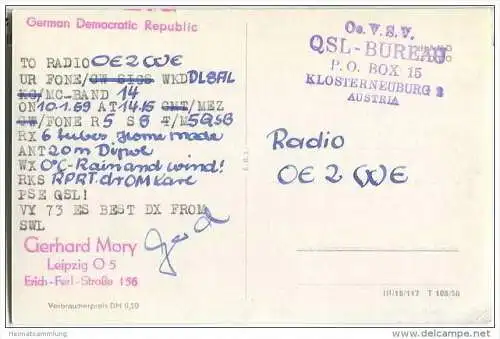 German Democratic Republic
TO RADIO OE2WE
UR FONE/CW SIGS WKD DL8AL
KC/MC-BAND 14
ON 10.1.69 AT 14.15 GMT/MEZ
CW/FONE R5 S8 T/M 5QSB
RX 6 tubes home made
ANT 20m Dipol
WX 0°C-Rain and wind!
RKS RPRT. dr OM Kare
PSE QSL!
VY 73 ES BEST DX FROM
SWL
Gerhard Mory
Leipzig O 5
Erich-Ferl-Straße 156
Gerd
Verbraucherpreis DM 0,20
Oe. V. S. V.
QSL-BUREAU
P. O. BOX 15
KLOSTERNEUBURG 2
AUSTRIA
Radio
OE2WE
III/18/117 T 108/58
Heimatsammlung
delcampe.net